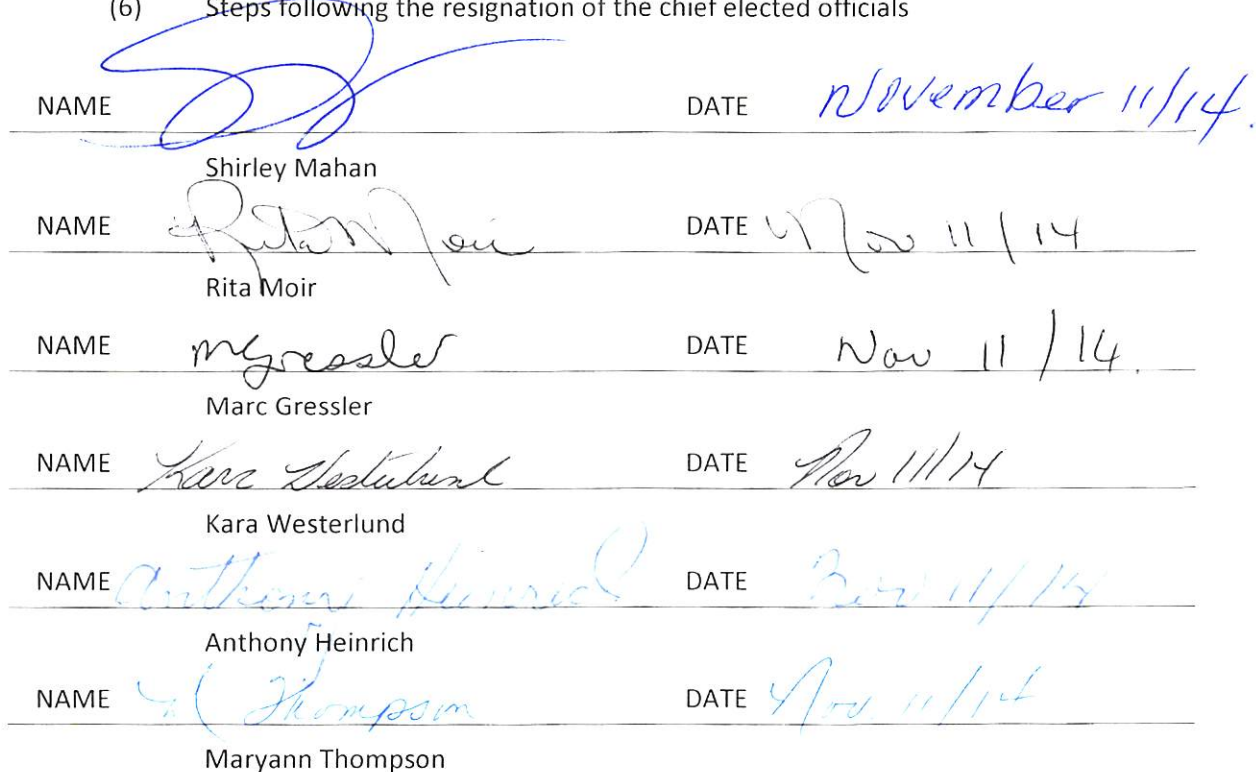 (6) Steps following the resignation of the chief elected officials
NAME DATE November 11/14.
Shirley Mahan
NAME Rita Moir DATE Nov 11/14
Rita Moir
NAME MGressler DATE Nov 11/14.
Marc Gressler
NAME Kara Westerlund DATE Nov 11/14
Kara Westerlund
NAME Anthony Heinrich DATE Nov 11/14
Anthony Heinrich
NAME M Thompson DATE Nov 11/14
Maryann Thompson